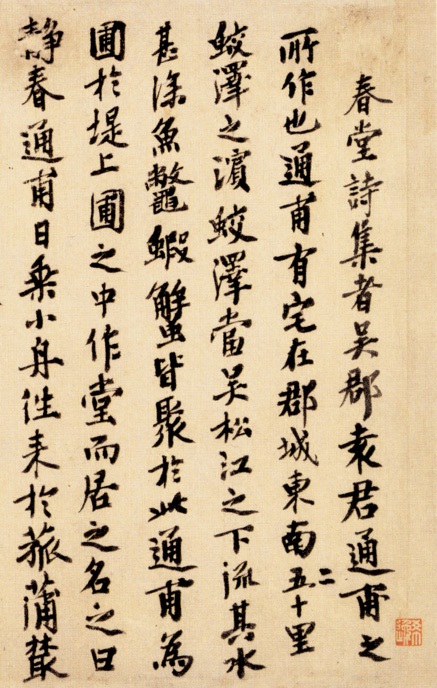 春堂詩集者吳郡袁君通甫之
所作也通甫有宅在郡城東南五二十里
蛟澤之濵蛟澤當吳松江之下流其水
甚深魚鼈蝦蟹皆聚於此通甫為
圃於堤上圃之中作堂而居之名之曰
靜春通甫日乘小舟往来於菰蒲叢